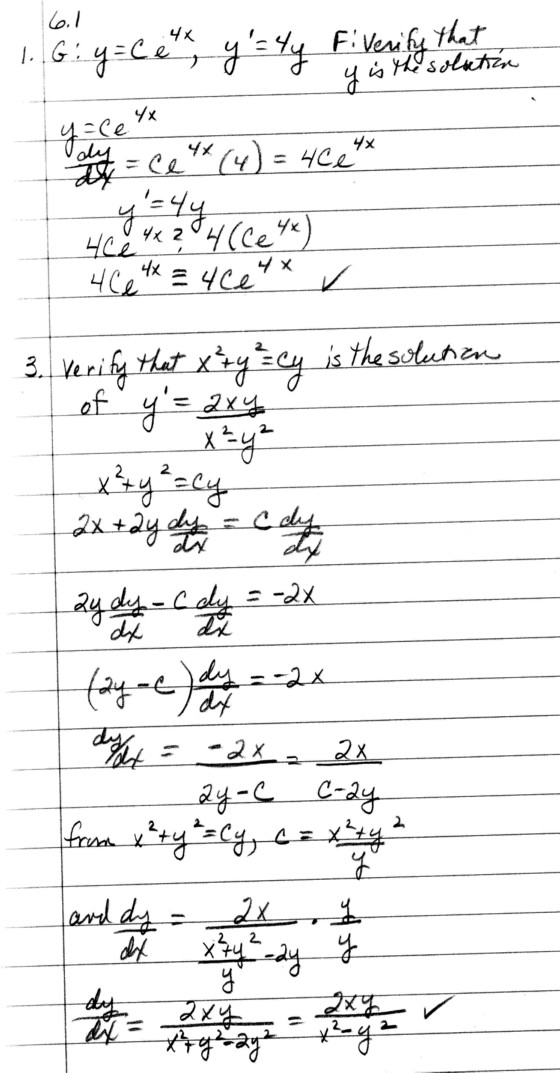 6.1
1. G: y = Ce^{4x}, y' = 4y F: Verify that
y is the solution
y = Ce^{4x}
dy/dx = Ce^{4x}(4) = 4Ce^{4x}
y' = 4y
4Ce^{4x} ≟ 4(Ce^{4x})
4Ce^{4x} ≡ 4Ce^{4x} ✓
3. Verify that x² + y² = Cy is the solution
of y' = 2xy/(x² - y²)
x² + y² = Cy
2x + 2y dy/dx = C dy/dx
2y dy/dx - C dy/dx = -2x
(2y - C) dy/dx = -2x
dy/dx = -2x/(2y - C) = 2x/(C - 2y)
from x² + y² = Cy, C = (x² + y²)/y
and dy/dx = 2x/((x² + y²)/y - 2y) · y/y
dy/dx = 2xy/(x² + y² - 2y²) = 2xy/(x² - y²) ✓